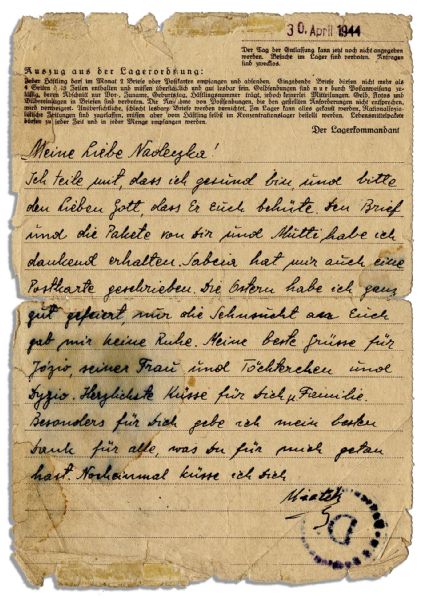 30. April 1944
Der Tag der Entlassung kann jetzt noch nicht angegeben
werden. Besuche im Lager sind verboten. Anfragen
sind zwecklos.
Auszug aus der Lagerordnung:
Jeder Häftling darf im Monat 2 Briefe oder Postkarten empfangen und absenden. Eingehende Briefe dürfen nicht mehr als
4 Seiten à 15 Zeilen enthalten und müssen übersichtlich und gut lesbar sein. Geldsendungen sind nur durch Postanweisung zu-
lässig, deren Abschnitt nur Vor-, Zuname, Geburtstag, Häftlingsnummer trägt, jedoch keinerlei Mitteilungen. Geld, Fotos und
Bildereinlagen in Briefen sind verboten. Die Annahme von Postsendungen, die den gestellten Anforderungen nicht entsprechen,
wird verweigert. Unübersichtliche, schlecht lesbare Briefe werden vernichtet. Im Lager kann alles gekauft werden. Nationalsozia-
listische Zeitungen sind zugelassen, müssen aber vom Häftling selbst im Konzentrationslager bestellt werden. Lebensmittelpakete
dürfen zu jeder Zeit und in jeder Menge empfangen werden.
Der Lagerkommandant
Meine Liebe Nadeczka!
Ich teile mit, dass ich gesund bin und bitte
den Lieben Gott, dass Er euch behüte. Den Brief
und die Pakete von Dir und Mutti, habe ich
dankend erhalten. Sabcia hat mir auch eine
Postkarte geschrieben. Die Ostern habe ich ganz
gut gefeiert, nur die Sehnsucht an Euch
gab mir keine Ruhe. Meine beste Grüsse für
Józio, seiner Frau und Töchterchen und
Dyzio. Herzlichste Küsse für Dich u. Familie.
Besonders für Dich gebe ich mein besten
Dank für alle, was Du für mich getan
hast. Nocheinmal küsse ich Dich
D